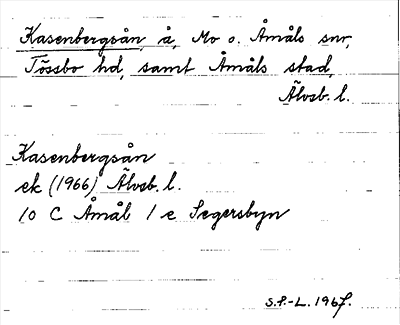 Kasenbergsån, å, Mo o. Åmåls snr,
Tössbo hd, samt Åmåls stad,
Älvsb. l.
Kasenbergsån
ek (1966) Älvsb. l.
10 C Åmål 1 e Segersbyn
S.P.-L. 1967.